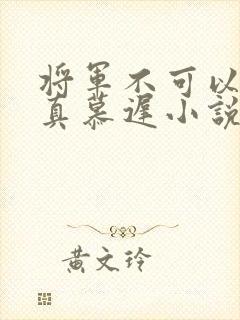 将軍不可以
真慕遲小說
黃文玲